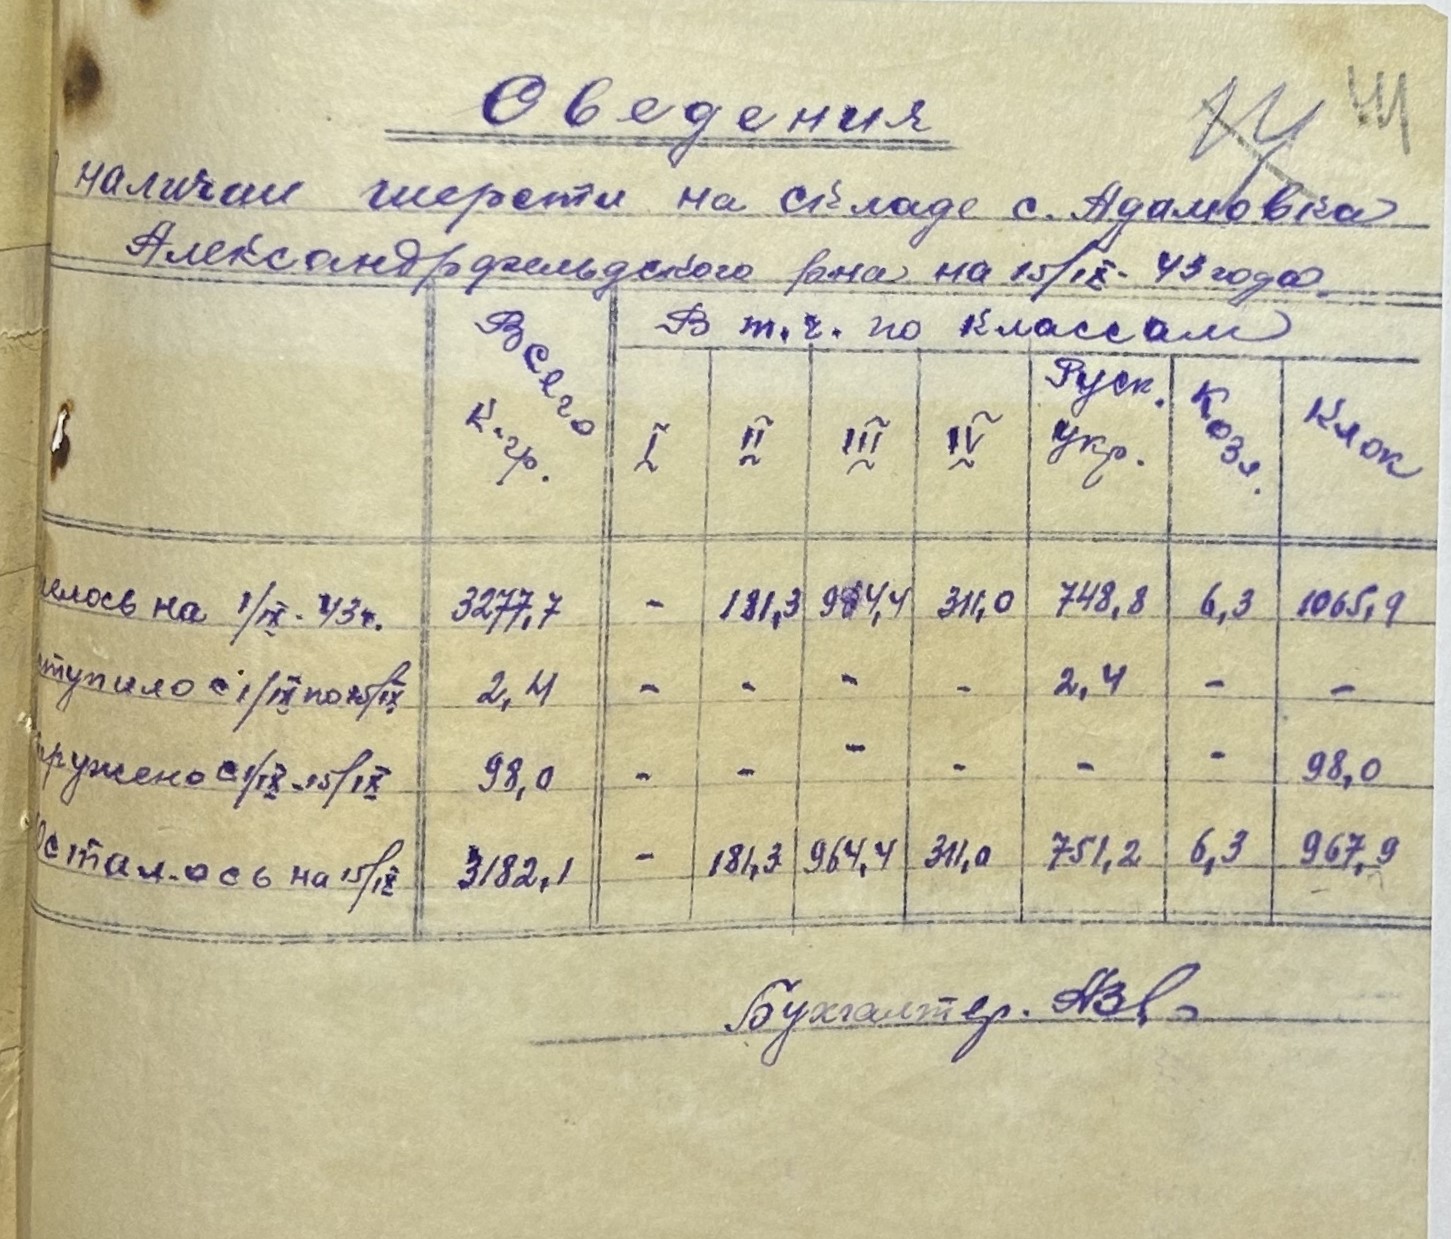 41
Сведения
наличии шерсти на складе с. Адамовка
Александрфельдского р-на на 15/IX-43 года
Всего к.гр. В т.ч. по классам
I II III IV Руск. Укр. Козл. Клок
мелось на 1/IX-43г. 3277,7 - 181,3 964,4 311,0 748,8 6,3 1065,9
ступило с 1/IX по 15/IX 2,4 - - - - 2,4 - -
гружено с 1/IX-15/IX 98,0 - - - - - - 98,0
Осталось на 15/IX 3182,1 - 181,3 964,4 311,0 751,2 6,3 967,9
Бухгалтер.